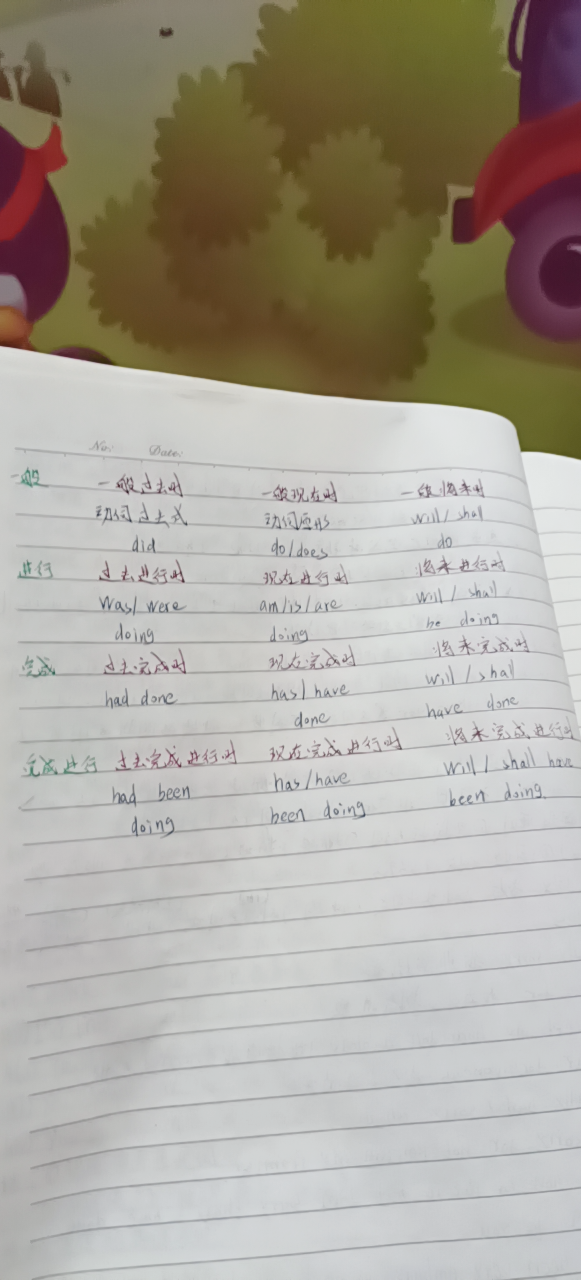 No: Date:
一般 一般过去时 一般现在时 一般将来时
动词过去式 动词原形 will/shall
did do/does do
进行 过去进行时 现在进行时 将来进行时
was/were am/is/are will/shall
doing doing be doing
完成 过去完成时 现在完成时 将来完成时
had done has/have will/shall
done have done
完成进行 过去完成进行时 现在完成进行时 将来完成进行时
had been has/have will/shall have
doing been doing been doing